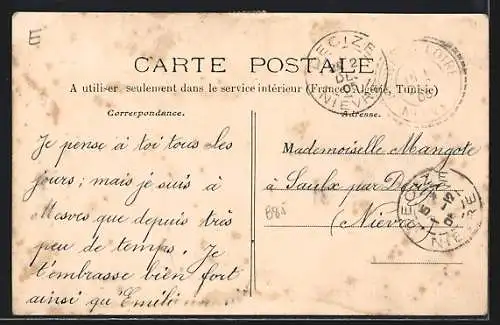 E
CARTE POSTALE
A utiliser seulement dans le service intérieur (France, Algérie, Tunisie)
Correspondance.
Adresse.
Je pense à toi tous les
jours; mais je suis à
Mesves que depuis très
peu de temps. Je
t'embrasse bien fort
ainsi qu'Emili
Mademoiselle Mangote
à Saulx par Decize
(Nièvre)
DECIZE
NIEVRE
LOIRE
DECIZE
NIEVRE